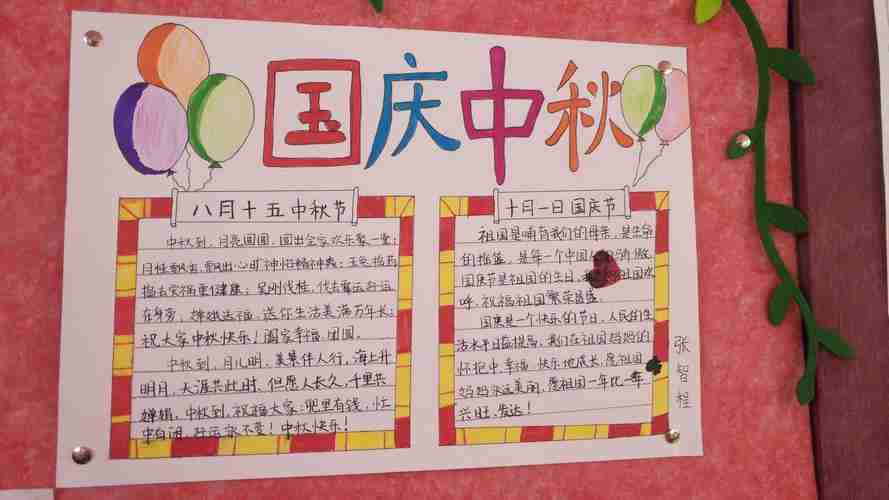 国庆中秋
八月十五中秋节
中秋到，月亮圆圆，圆出全家欢乐聚一堂；
月桂飘香，飘出心旷神怡精神爽；玉兔捣药
捣去灾祸更健康；吴刚伐桂，伐去霉运好运
在身旁，嫦娥送福，送你生活美满万年长；
祝大家中秋快乐！阖家幸福，团圆。
中秋到，月儿明，美景伴人行，海上升
明月，天涯共此时，但愿人长久，千里共
婵娟，中秋到，祝福大家：兜里有钱，忙
中有闲，好运永不变！中秋快乐！
十月一日国庆节
祖国是哺育我们的母亲，是生命
的摇篮，是每一个中国人
国庆节是祖国的生日，祖国欢
呼，祝福祖国繁荣昌盛。
国庆是一个快乐的节日，人民的生
活水平日益提高，我们在祖国妈妈的
怀抱中幸福、快乐地成长，愿祖国
妈妈永远美丽，愿祖国一年比一年
兴旺，发达！
张智程